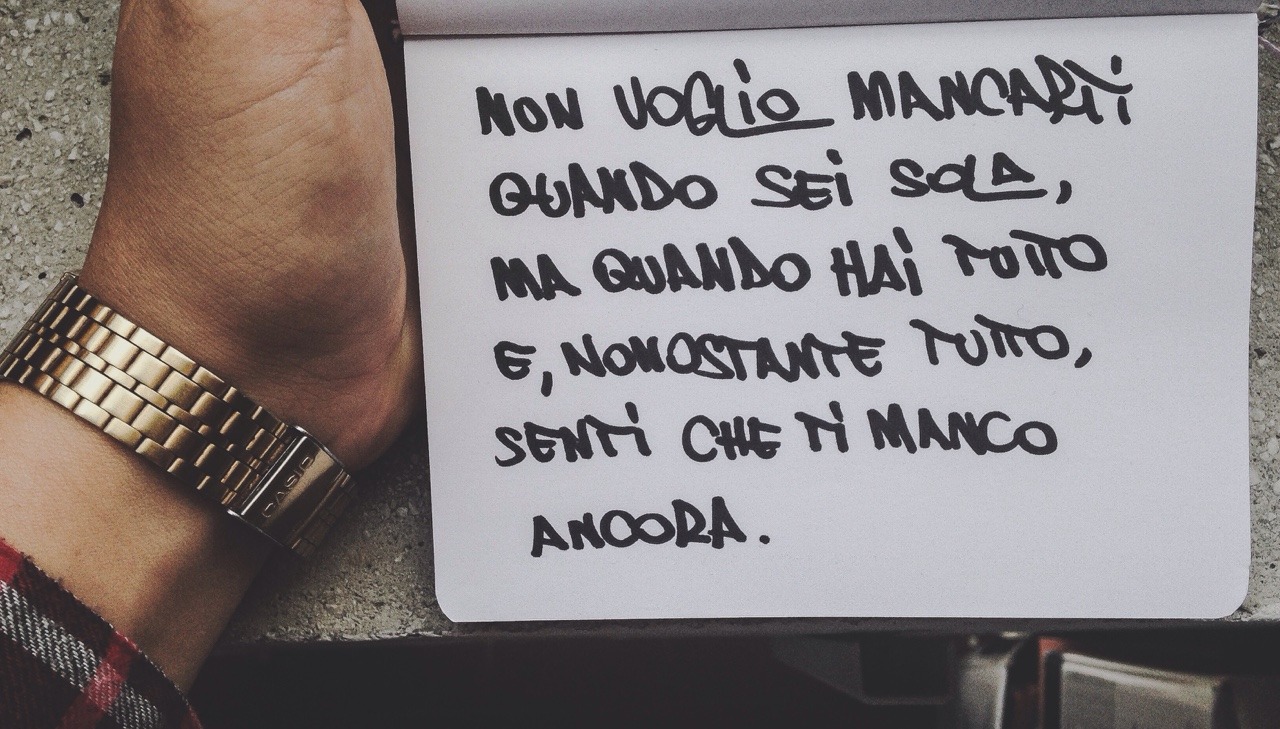 NON VOGLIO MANCARTI
QUANDO SEI SOLA,
MA QUANDO HAI TUTTO
E, NONOSTANTE TUTTO,
SENTI CHE TI MANCO
ANCORA.
CASIO